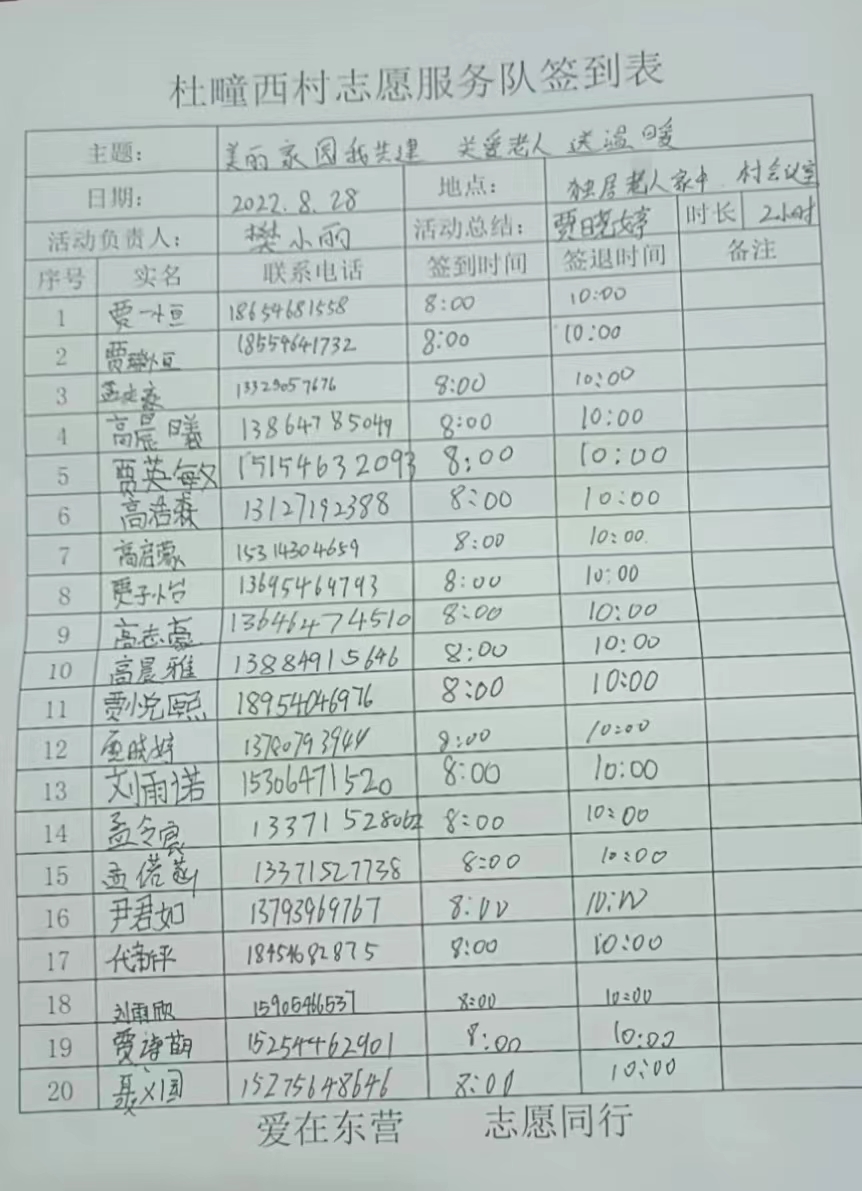 杜疃西村志愿服务队签到表
主题: 美丽家园我共建 关爱老人 送温暖
日期: 2022.8.28 地点: 独居老人家中 村会议室
活动负责人: 樊小丽 活动总结: 贾晓婷 时长 2小时
序号 实名 联系电话 签到时间 签退时间 备注
1 贾一恒 18654681558 8:00 10:00
2 18559641732 8:00 10:00
3 13329057676 8:00 10:00
4 高晨曦 13864785049 8:00 10:00
5 贾英敏 15154632093 8:00 10:00
6 高浩森 13127192388 8:00 10:00
7 高启蒙 15314304659 8:00 10:00
8 贾子怡 13695469793 8:00 10:00
9 高志豪 13646474510 8:00 10:00
10 高晨雅 13884915646 8:00 10:00
11 贾悦熙 18954046976 8:00 10:00
12 贾晓婷 13780793944 8:00 10:00
13 刘雨诺 15306471520 8:00 10:00
14 13371528062 8:00 10:00
15 13371527738 8:00 10:00
16 尹君如 13793969767 8:00 10:00
17 代新平 18454682875 8:00 10:00
18 刘雨欣 15905466537 8:00 10:00
19 贾诗萌 15254462901 8:00 10:00
20 聂义国 15275648646 8:00 10:00
爱在东营 志愿同行